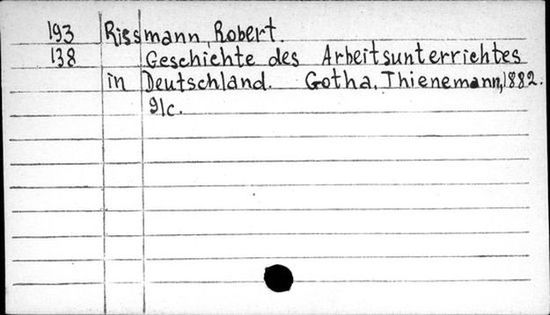 193 Rissmann, Robert.
138 Geschichte des Arbeitsunterrichtes
in Deutschland. Gotha, Thienemann, 1882.
91c.